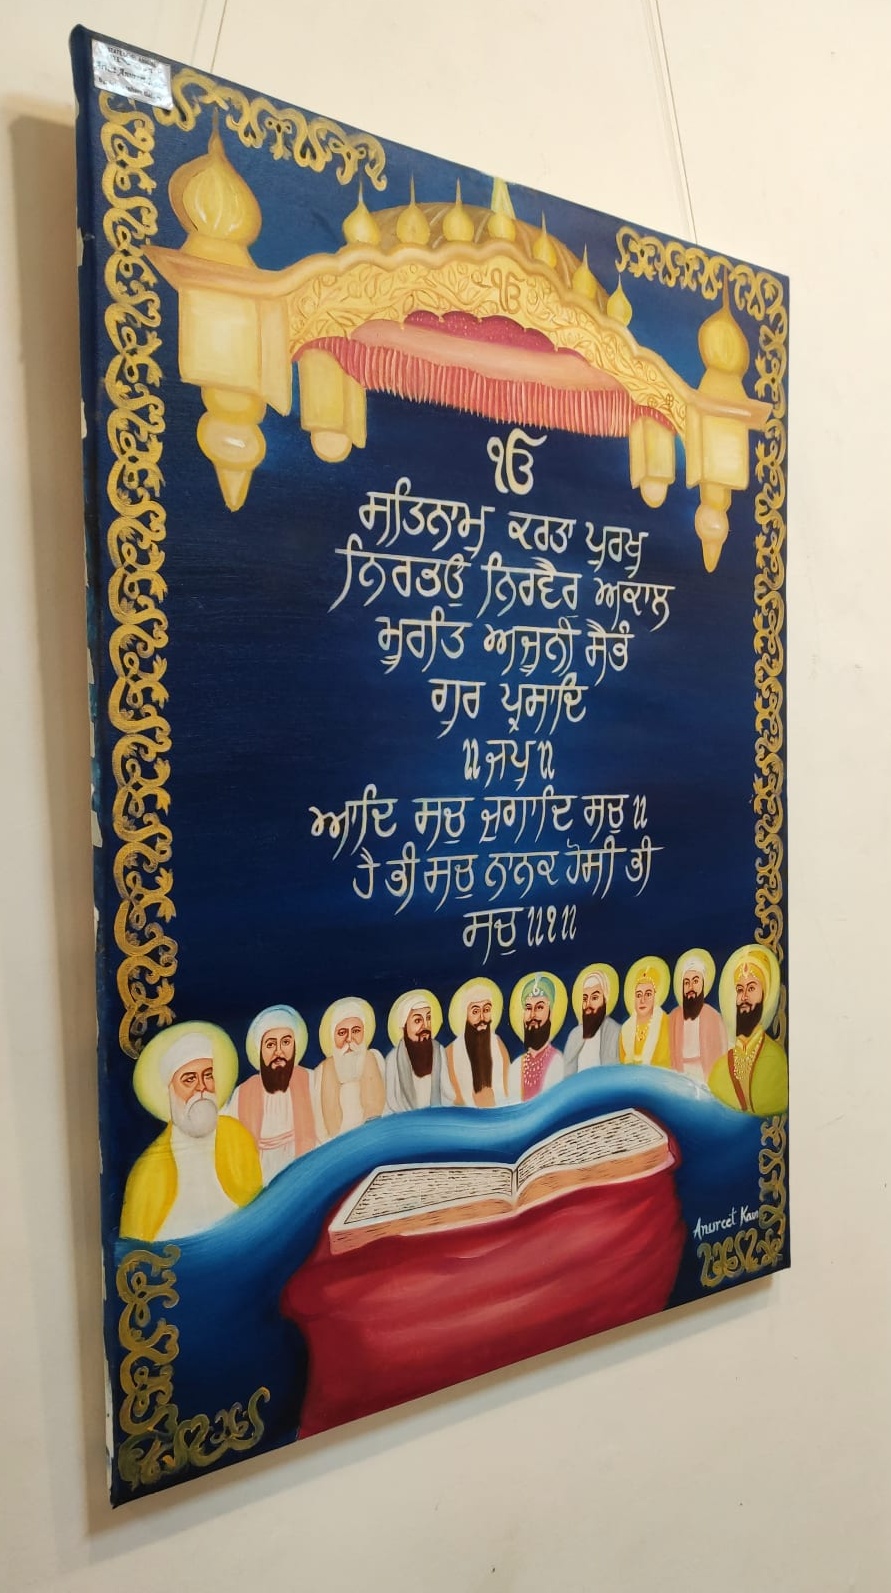 ੴ
ੴ
ਸਤਿਨਾਮੁ ਕਰਤਾ ਪੁਰਖੁ
ਨਿਰਭਉ ਨਿਰਵੈਰੁ ਅਕਾਲ
ਮੂਰਤਿ ਅਜੂਨੀ ਸੈਭੰ
ਗੁਰ ਪ੍ਰਸਾਦਿ
॥ਜਪੁ॥
ਆਦਿ ਸਚੁ ਜੁਗਾਦਿ ਸਚੁ॥
ਹੈ ਭੀ ਸਚੁ ਨਾਨਕ ਹੋਸੀ ਭੀ
ਸਚੁ॥੧॥
Anureet Kaur